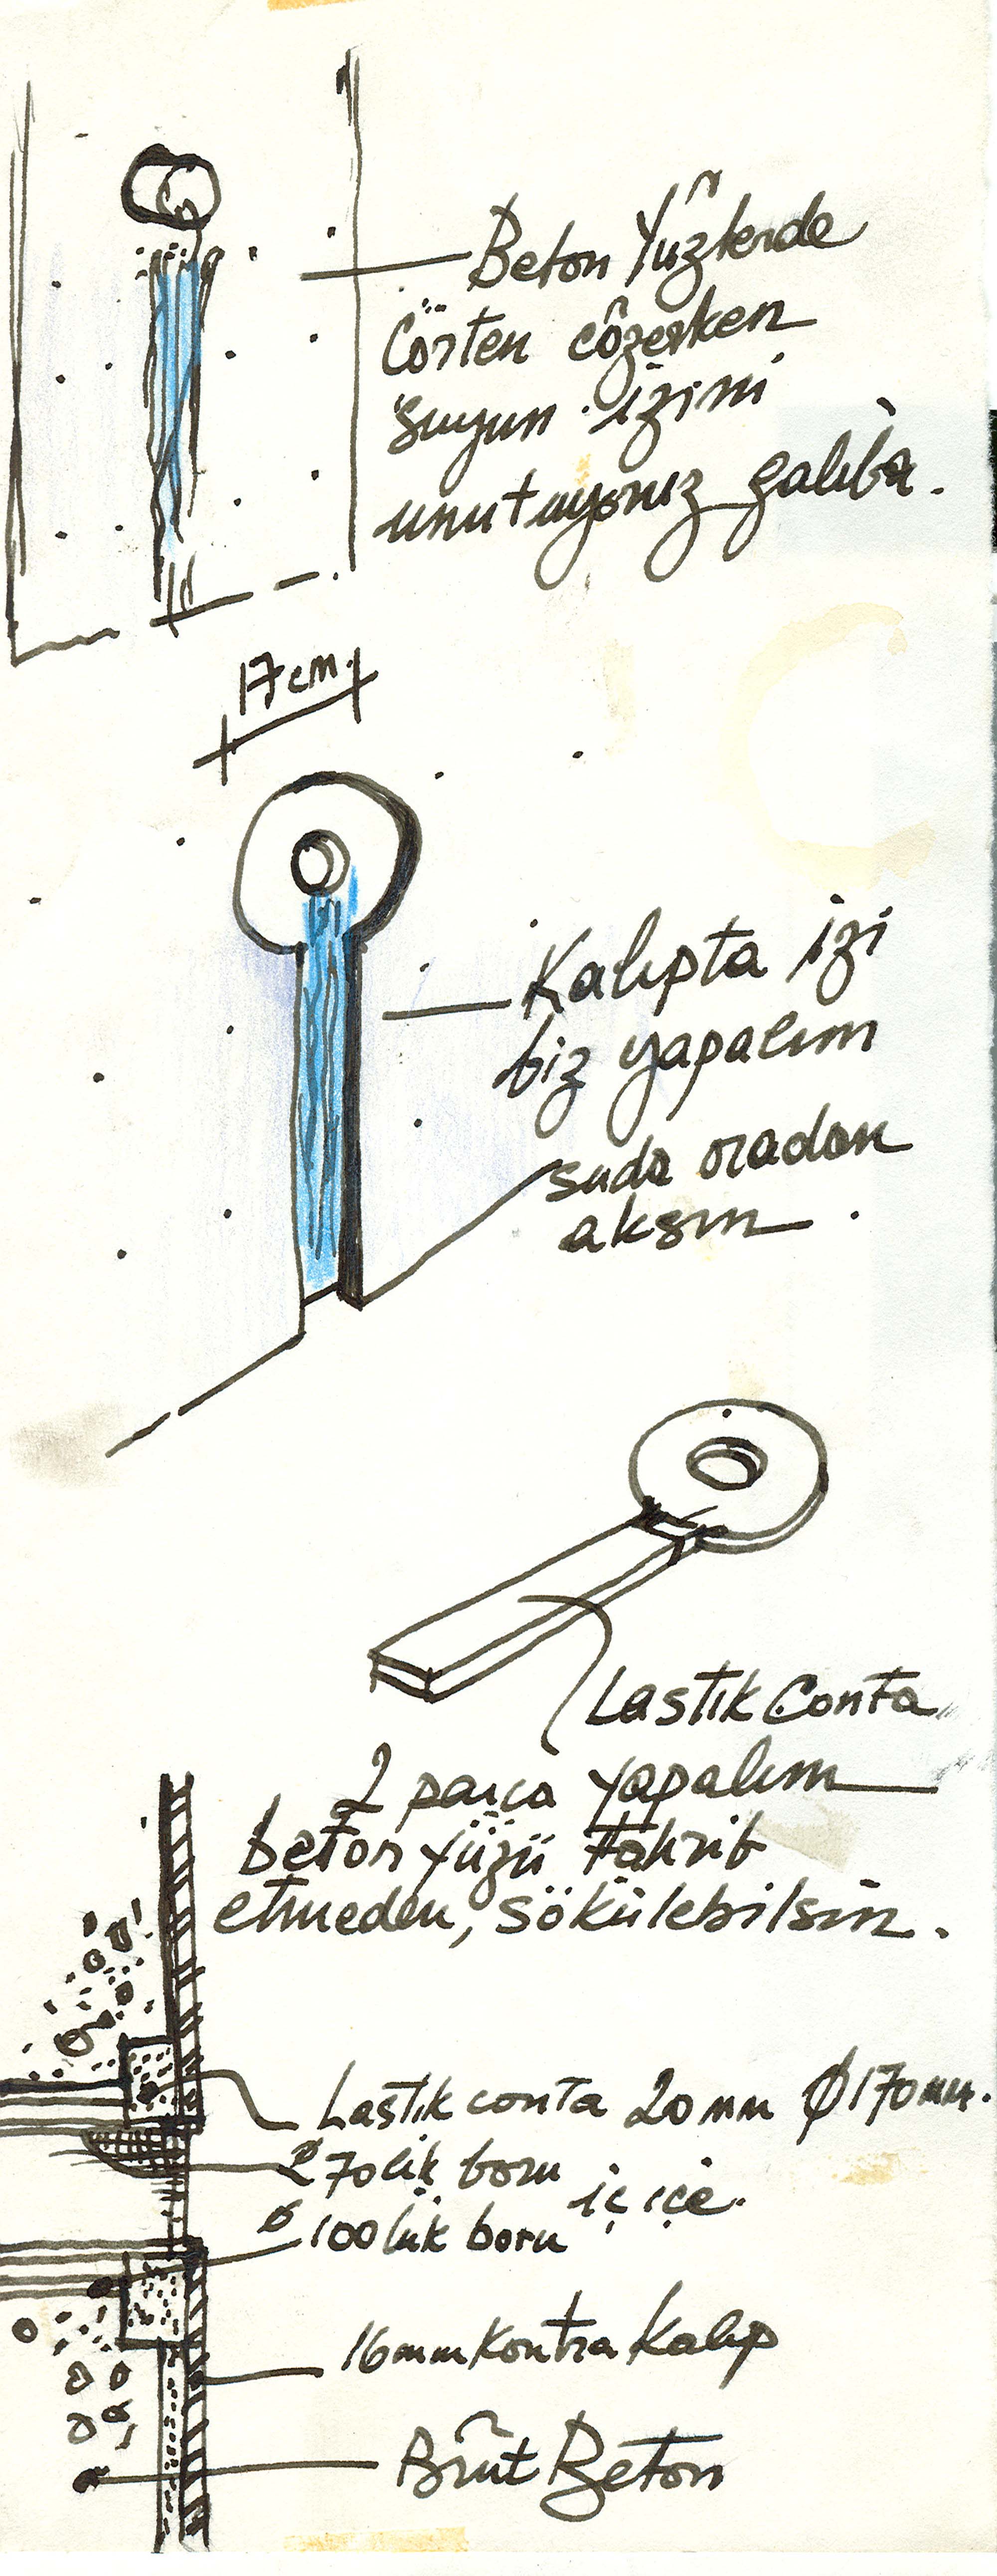 Beton Yüzlerde
Çörten çözerken
suyun izini
unutuyoruz galiba.
17cm.
Kalıpta izi
biz yapalım
suda oradan
aksın.
Lastik Conta
2 parça yapalım
beton yüzü tahrib
etmeden, sökülebilsin.
Lastik conta 20mm Ø170mm.
Ø 70lik boru iç içe.
Ø 100lük boru
16mm Kontra Kalıp
Brüt Beton